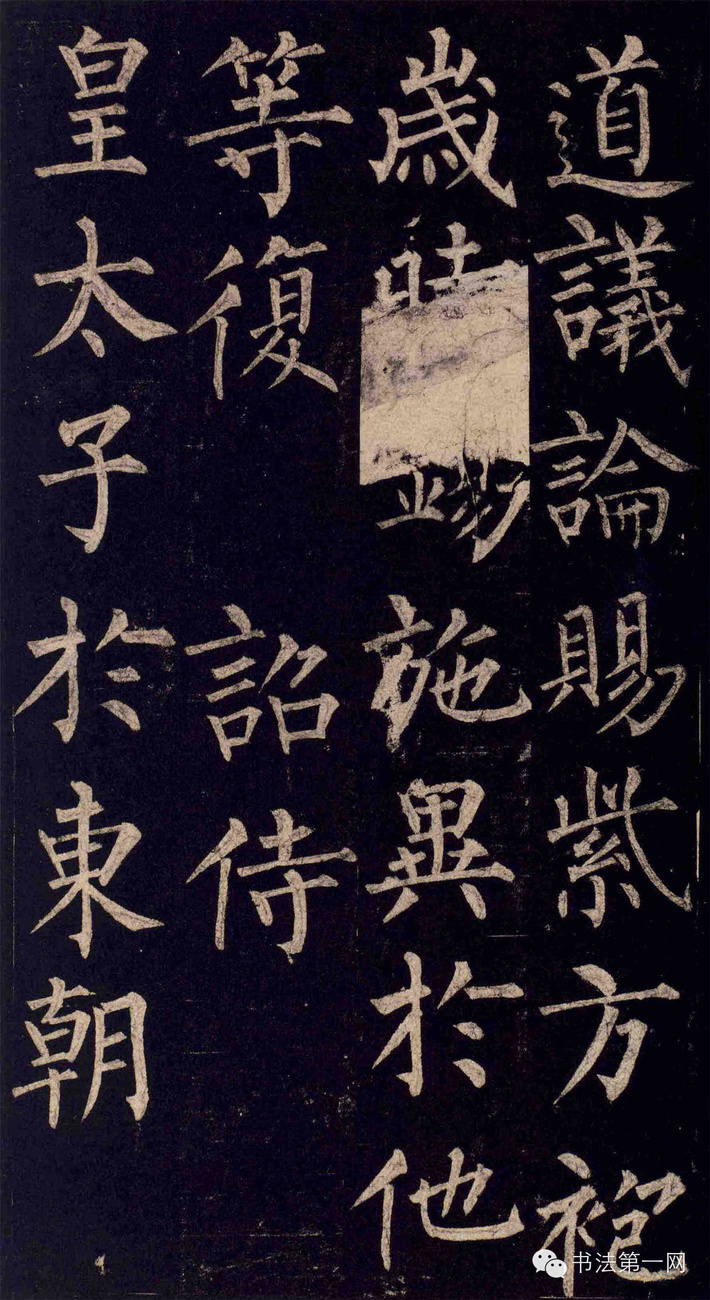 道議論賜紫方袍
歲時錫施異於他
等復 詔侍
皇太子於東朝
书法第一网